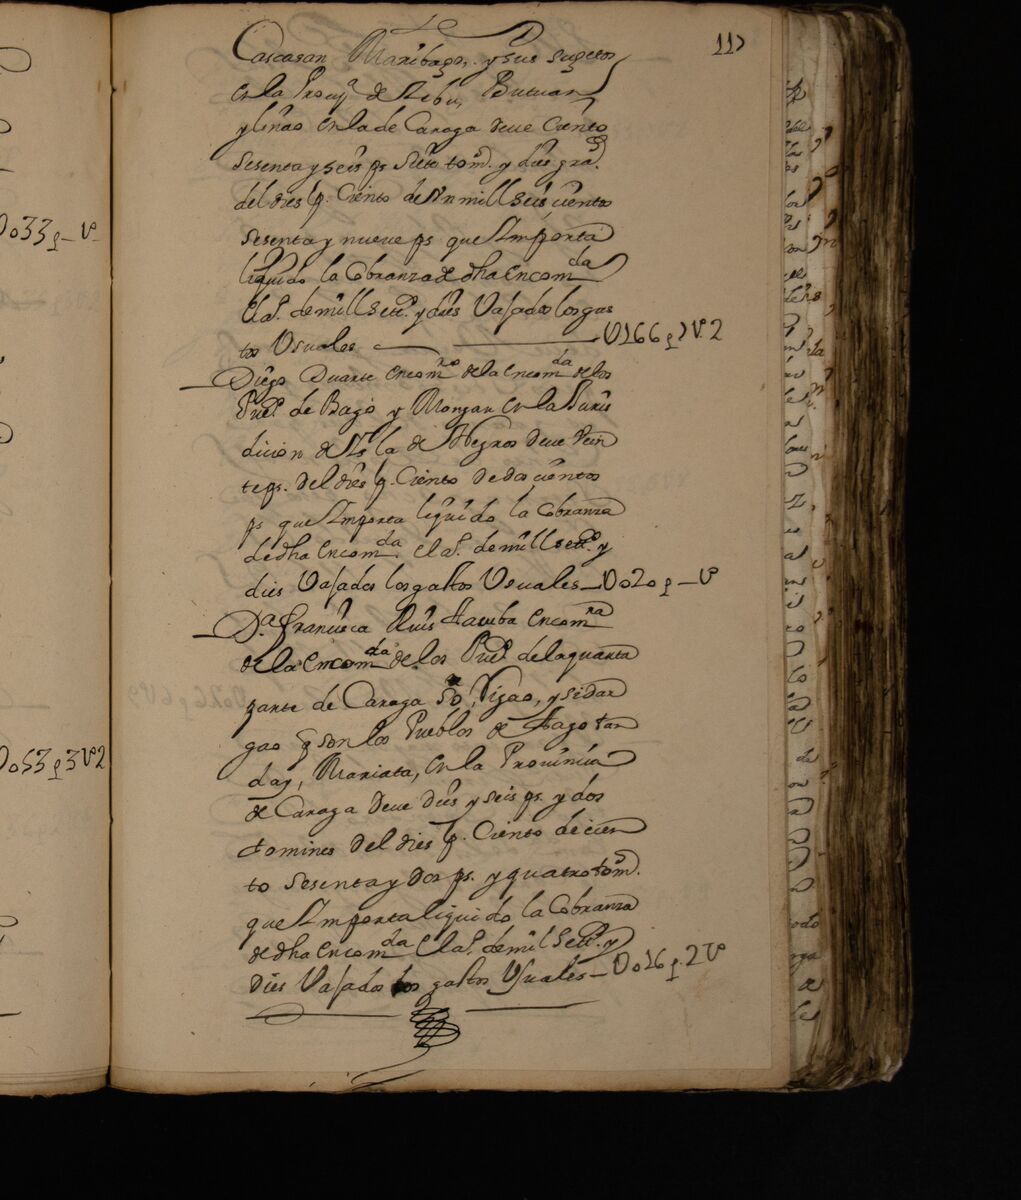 117
Cascasan Maribago, y sus sugetos
en la Prov.ª de Sebu, Butuan
y linao en la de Caraga deve Ciento
sesenta y seis ps siete tom.s y dos gra.s
del dies p. Ciento de Un mill seis cientos
sesenta y nueve ps que Importa
liquido la Cobranza de dha Encom.da
el a.º de mill Sett.s y dies Vajados los gas
tos Usuales U166 p 7 t.s 2
Diego Duarte Encom.ro de la Encom.da de los
Pue.s de Bago y Monzan en la Juris
dicion de Ysla de Negros deve Vein
te ps. del dies p. Ciento de dos cientos
ps que Importa liquido la Cobranza
de dha Encom.da el a.º de mill sett.s y
dies Vajados los gastos Usuales U020 p
D.ª Fran.ca Ruis Encom.ra
de la Encom.da de los Pue.s de la quarta
parte de Caraga Vigao, y sidar
gao q son los Pueblos de Tago Tan
day, Mariata, en la Provincia
de Caraga deve dies y seis ps. y dos
tomines del dies p. Ciento de cien
to sesenta y dos ps. y quatro tom.s
que Importa liquido la Cobranza
de dha Encom.da el a.º de mil Sett.s y
dies Vajados los gastos Usuales U016 p 2 t.s
U033 p
U053 p 3 t.s 2